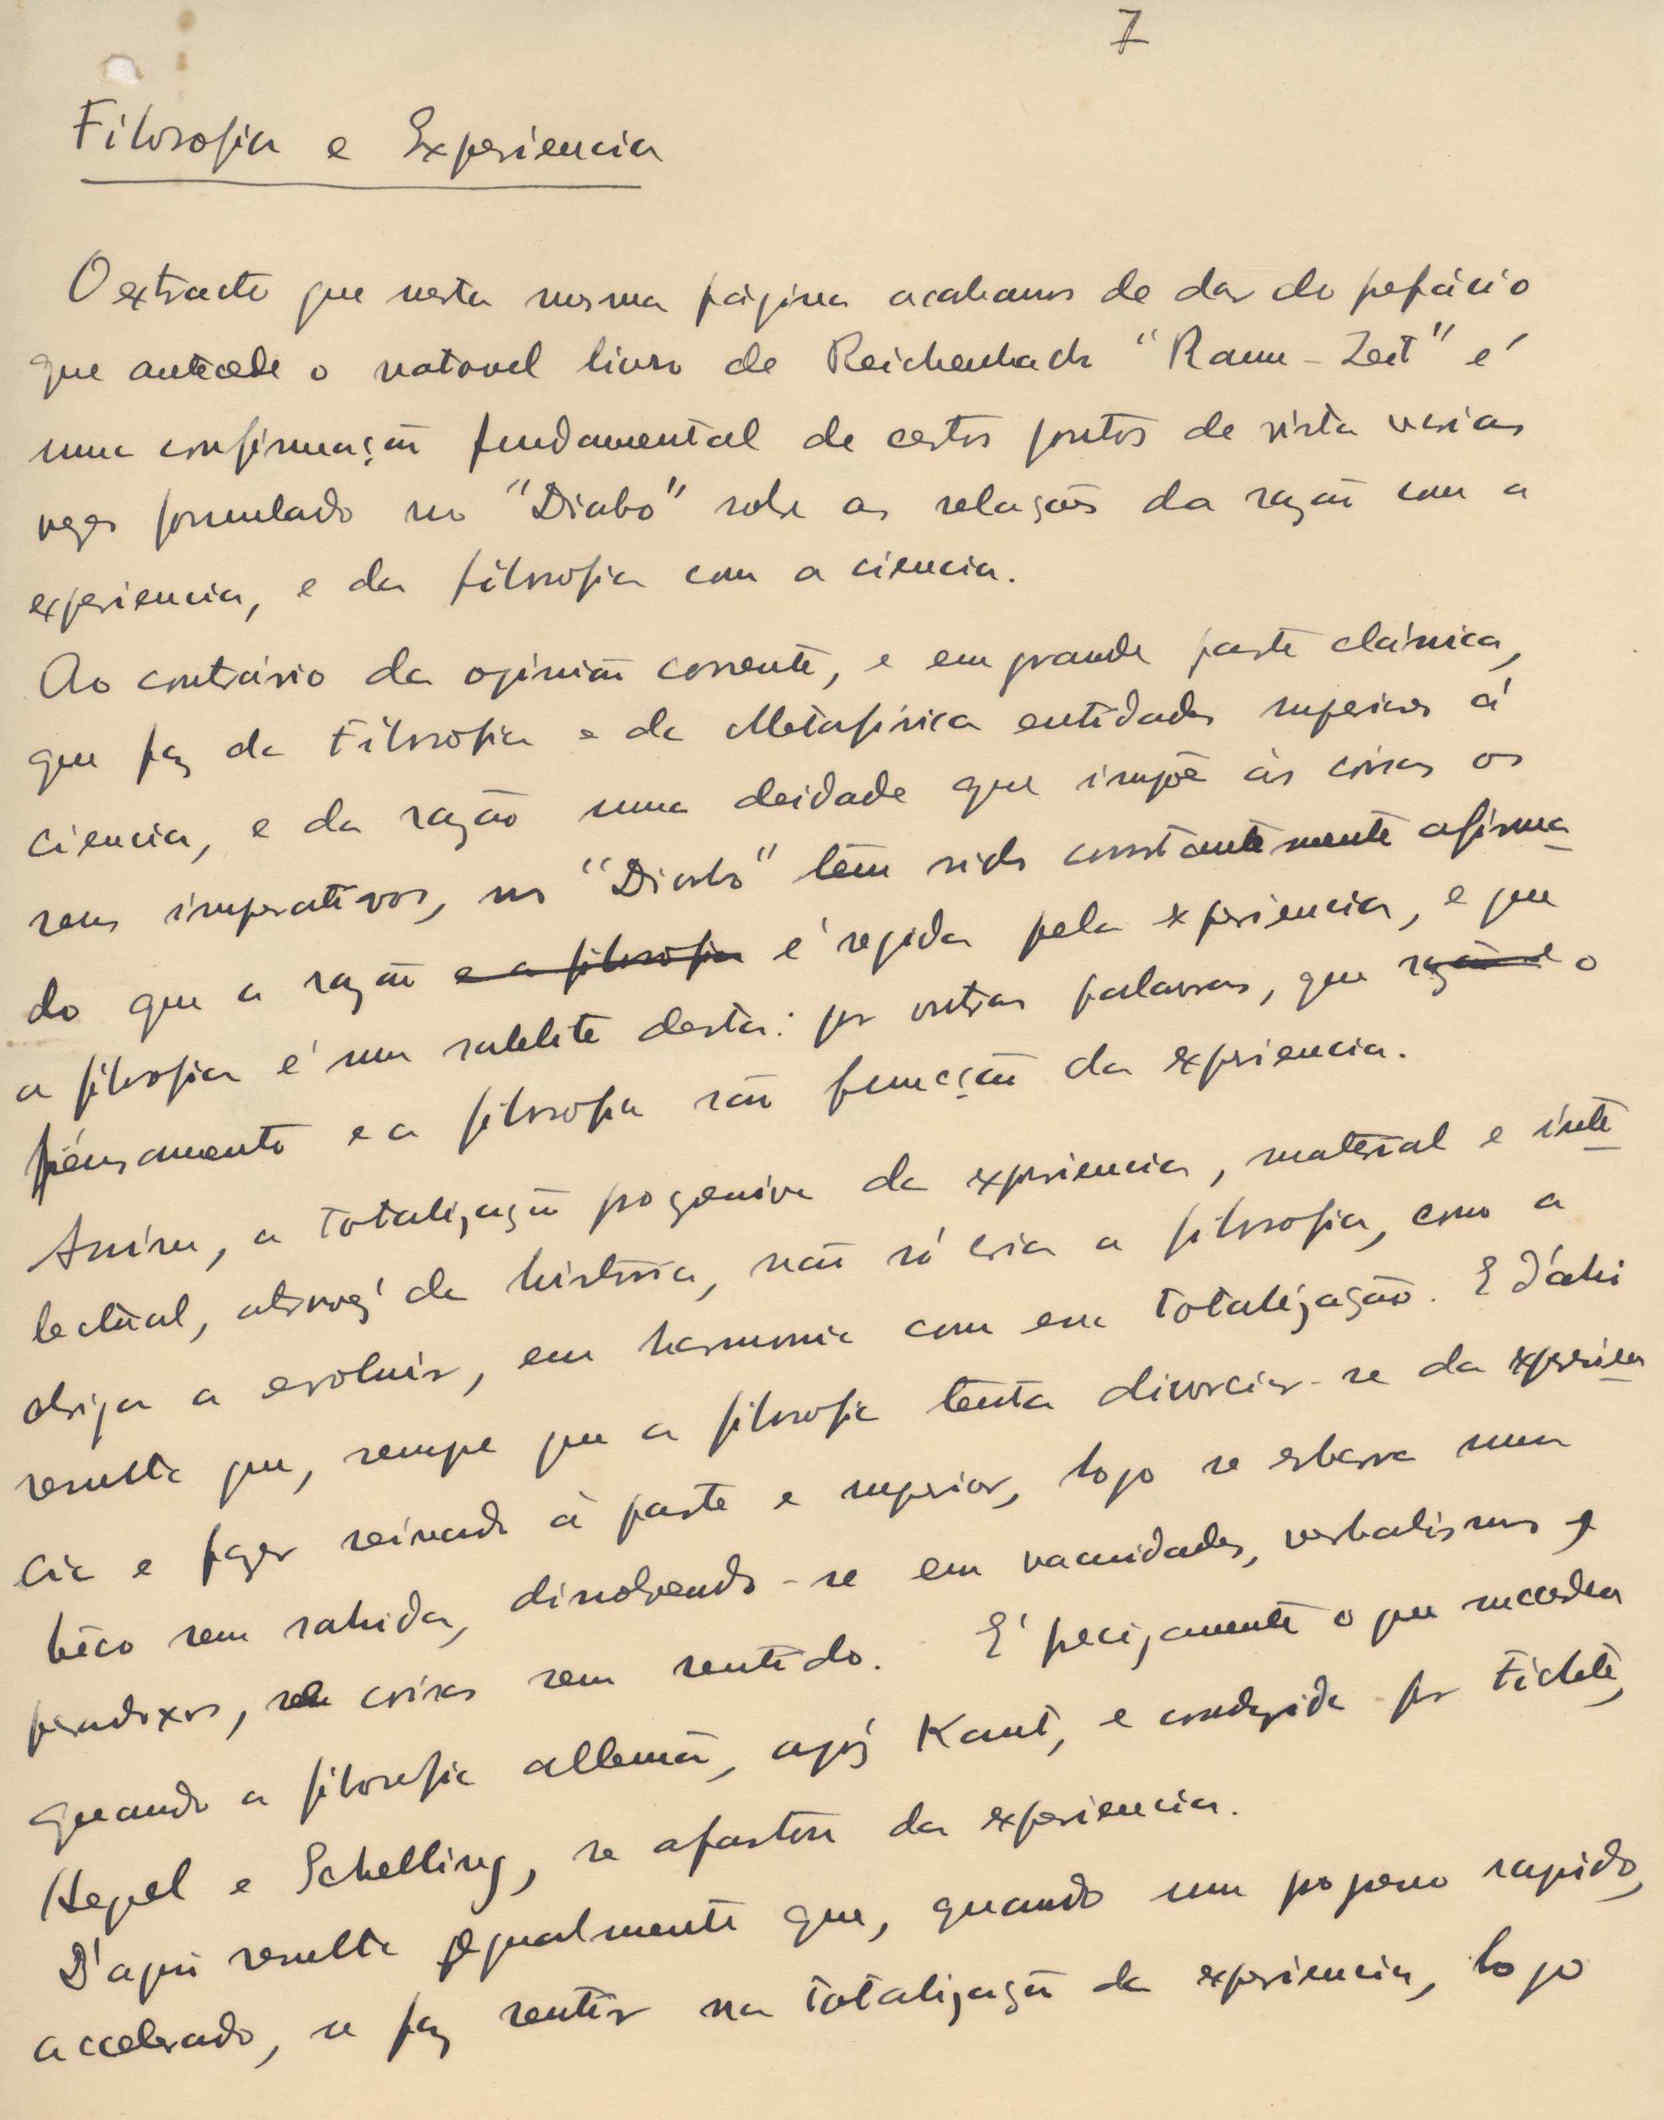 7
Filosofia e Experiencia
O extracto que nesta mesma página acabamos de dar do prefácio
que antecede o notavel livro de Reichenbach "Raum-Zeit" é
uma confirmação fundamental de certos pontos de vista varias
vezes formulado no "Diabo" sobre as relações da razão com a
experiencia, e da filosofia com a ciencia.
Ao contrário da opinião corrente, e em grande parte clássica,
que faz da Filosofia e da Metafísica entidades superiores á
ciencia, e da razão uma deidade que impõe ás coisas os
seus imperativos, no "Diabo" tem sido constantemente afirma
do que a razão e a filosofia é regida pela experiencia, e que
a filosofia é um satelite desta: por outras palavras, que razão e o
pensamento e a filosofia são funcção da experiencia.
Assim, a totalização progressiva da experiencia, material e inte
lectual, atravez da história, não só cria a filosofia, como a
obriga a evoluir, em harmonia com essa totalização. E d'ahi
resulta que, sempre que a filosofia tenta divorciar-se da experien
cia e fazer reinado á parte e superior, logo se esbarra num
bêco sem sahida, dissolvendo-se em vacuidades, verbalismos,
paradoxos, coisas sem sentido. E' precizamente o que succedeu
quando a filosofia allemã, após Kant, e conduzida por Fichte,
Hegel e Schelling, se afastou da experiencia.
D'aqui resulta egualmente que, quando um progresso rapido,
accelerado, se faz sentir na totalização da experiencia, logo